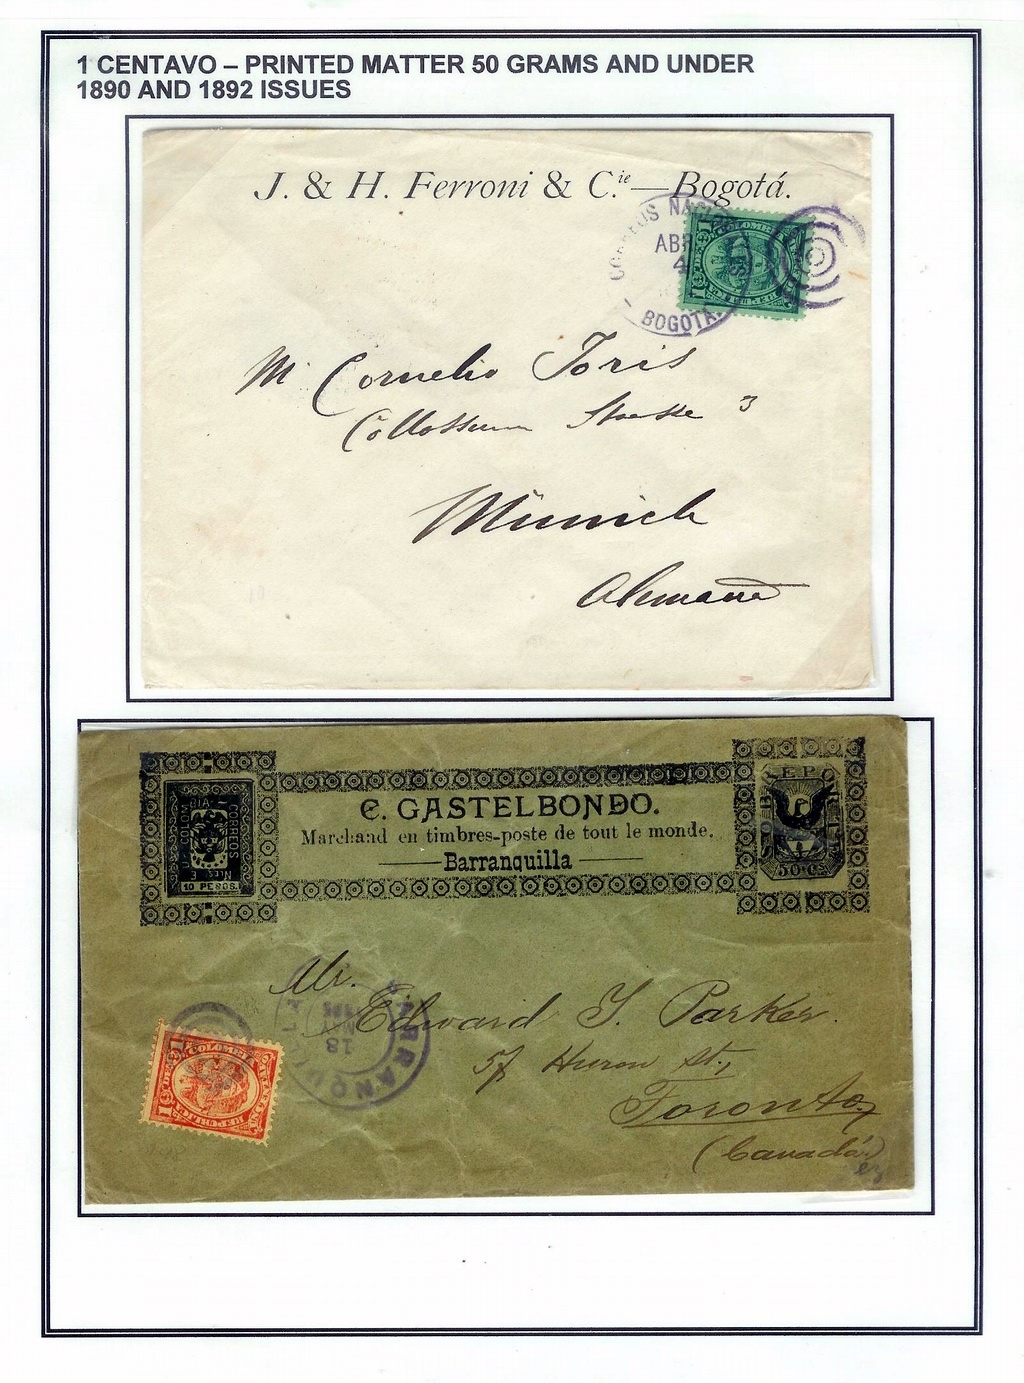 1 CENTAVO – PRINTED MATTER 50 GRAMS AND UNDER
1890 AND 1892 ISSUES
J. & H. Ferroni & C.ie — Bogotá.
CORREOS NACION
ABR
4
BOGOTA
M Cornelio Joris
Collosseum Strasse 3
Münich
Alemania
C. GASTELBONDO.
Marchand en timbres-poste de tout le monde.
Barranquilla
CORREOS
10 PESOS.
SOBREPORTE
50 Cs
BARRANQUILLA
18
MAY
Mr. Edward Y. Parker.
57 Huron St.,
Toronto,
(Canadá)